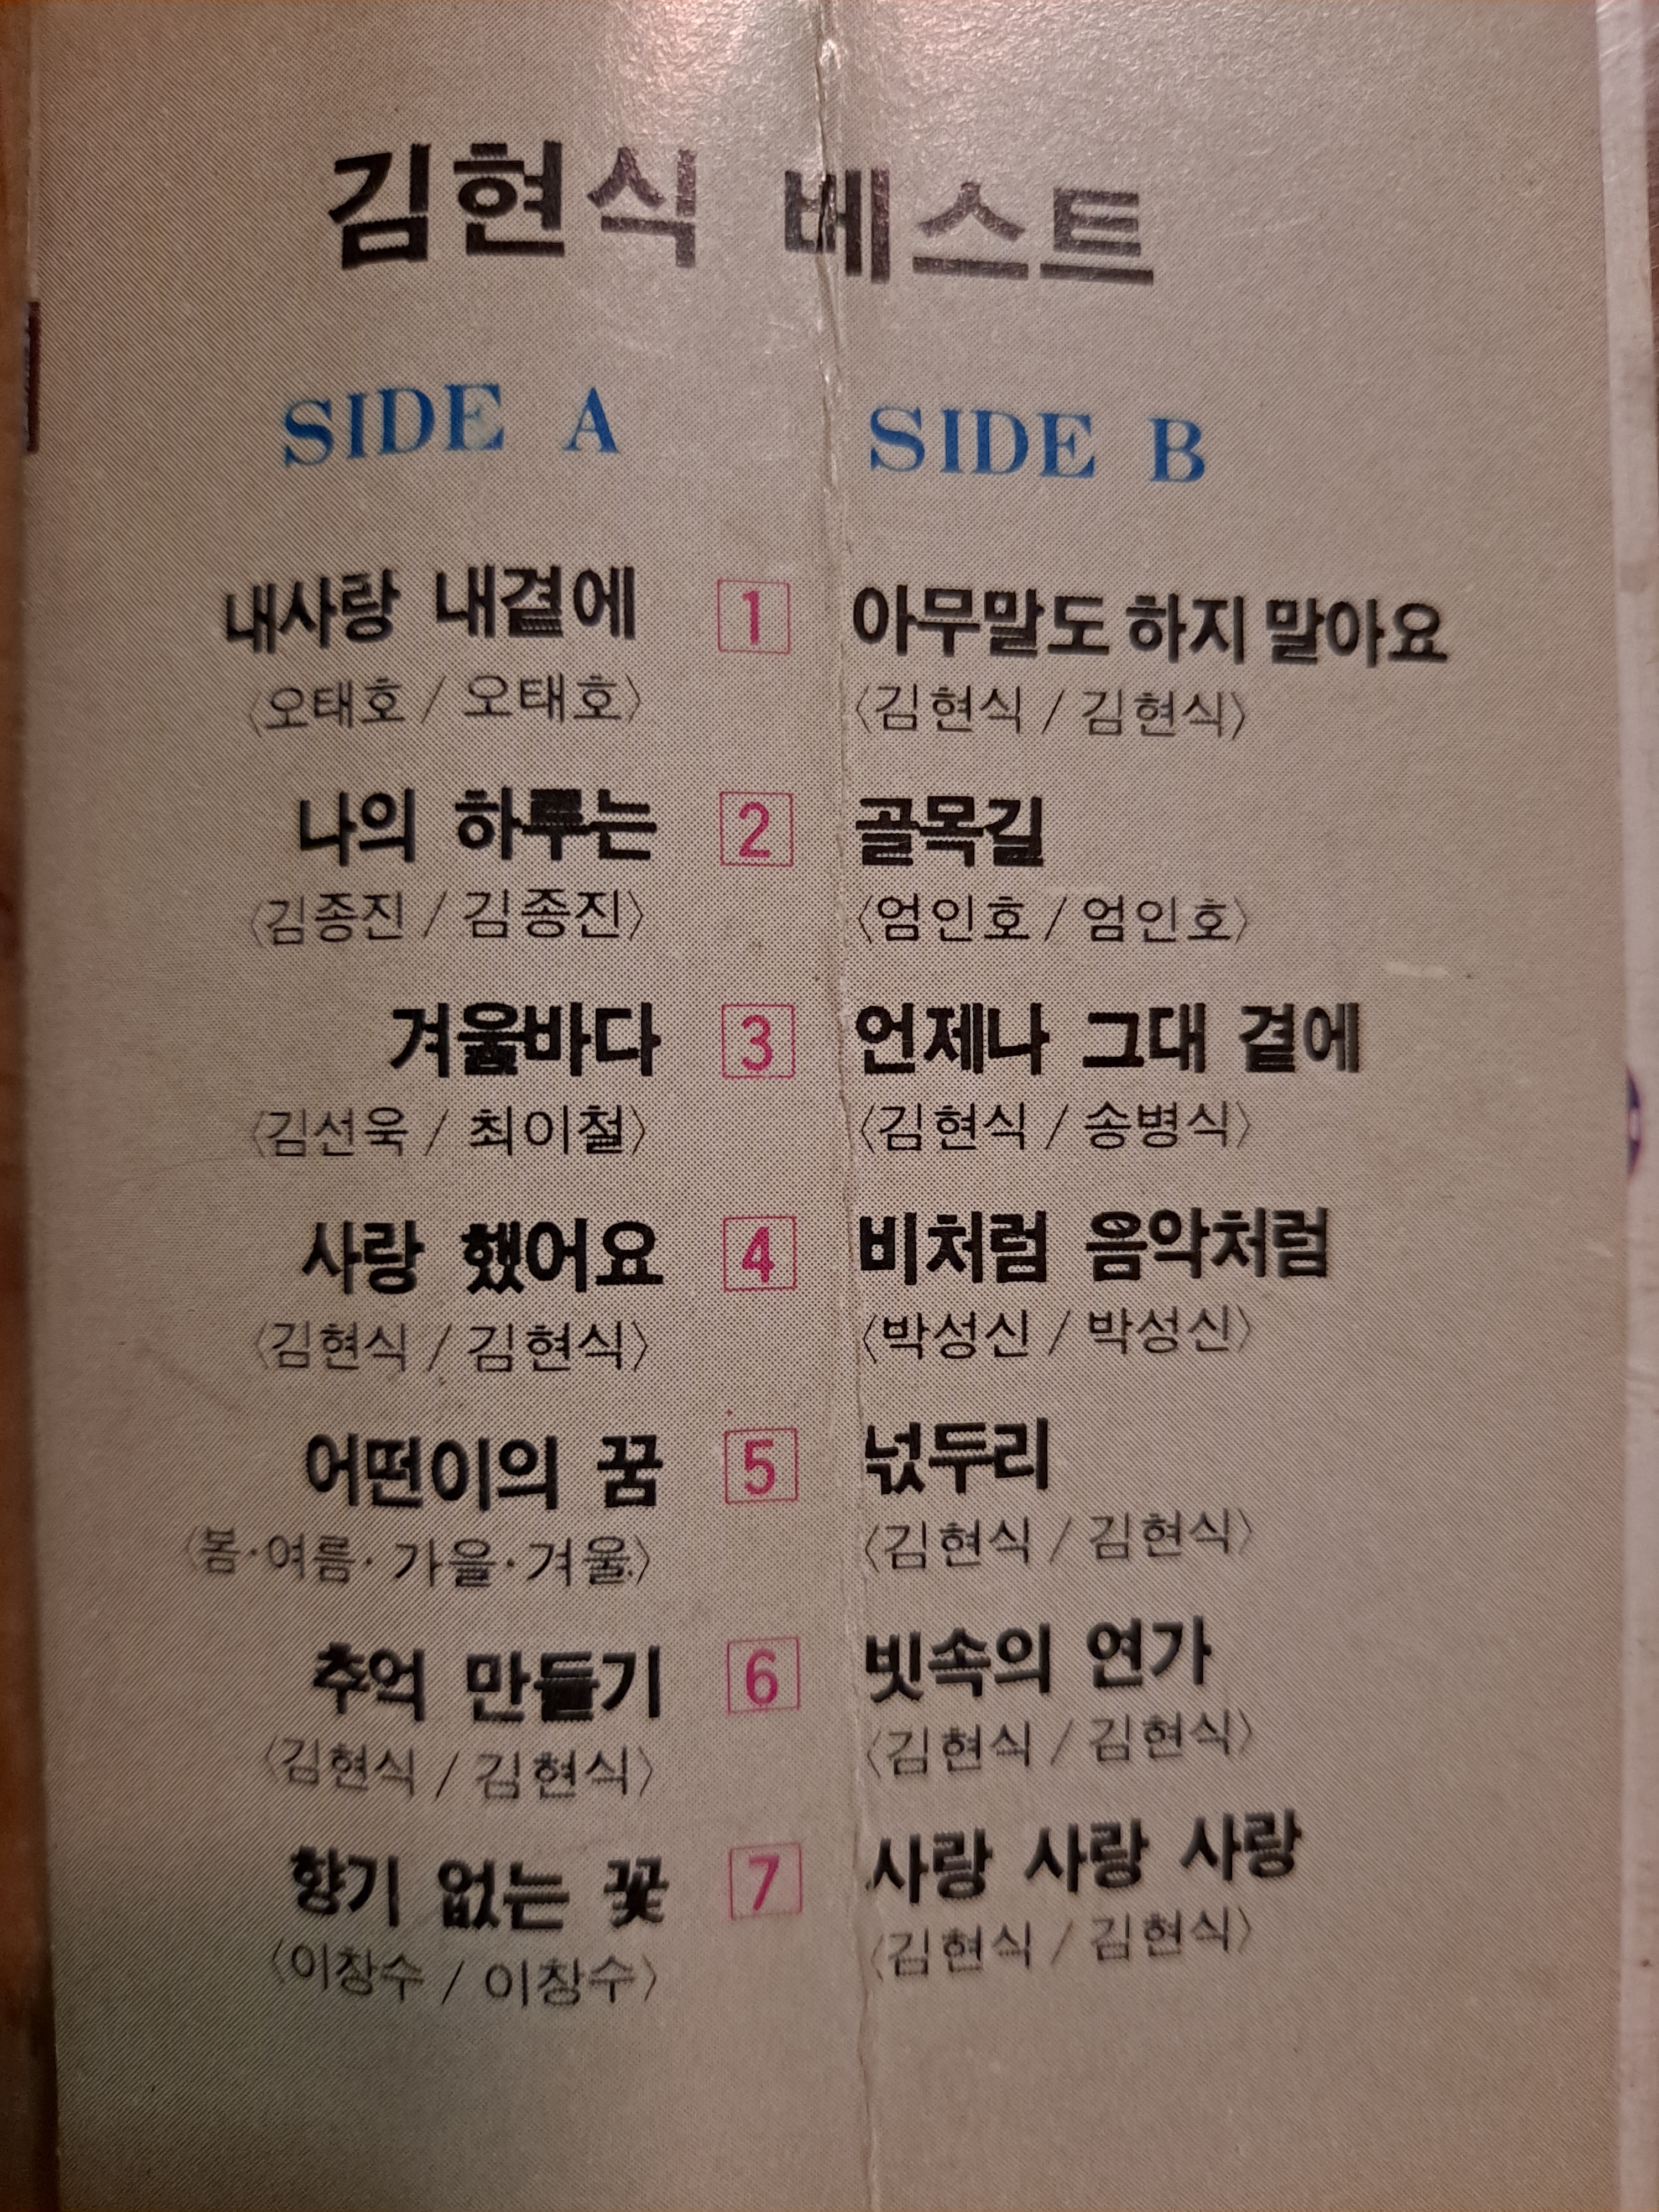 김현식 베스트
SIDE A
내사랑 내곁에
〈오태호 / 오태호〉
나의 하루는
〈김종진 / 김종진〉
겨울바다
〈김선욱 / 최이철〉
사랑 했어요
〈김현식 / 김현식〉
어떤이의 꿈
〈봄·여름·가을·겨울〉
추억 만들기
〈김현식 / 김현식〉
향기 없는 꽃
〈이창수 / 이창수〉
1
2
3
4
5
6
7
SIDE B
아무말도 하지 말아요
〈김현식 / 김현식〉
골목길
〈엄인호 / 엄인호〉
언제나 그대 곁에
〈김현식 / 송병식〉
비처럼 음악처럼
〈박성신 / 박성신〉
넋두리
〈김현식 / 김현식〉
빗속의 연가
〈김현식 / 김현식〉
사랑 사랑 사랑
〈김현식 / 김현식〉